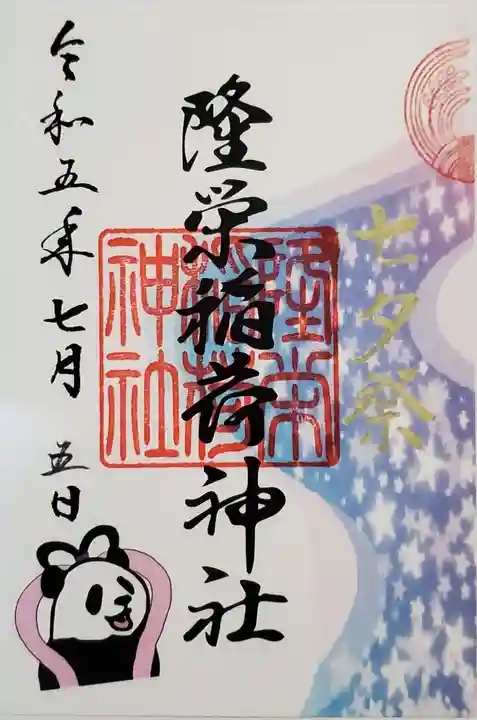 七夕祭
隆栄稲荷神社
隆栄
稲荷
神社
令和五年七月五日